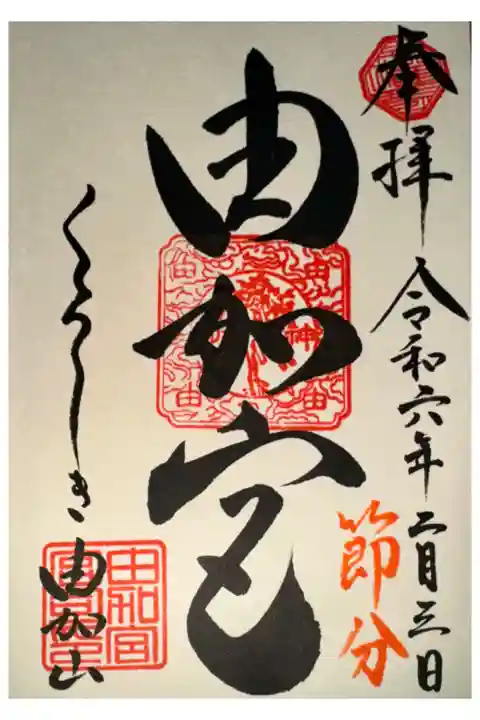 奉拝 令和六年二月三日
節分
由加宮
くらしき 由加山